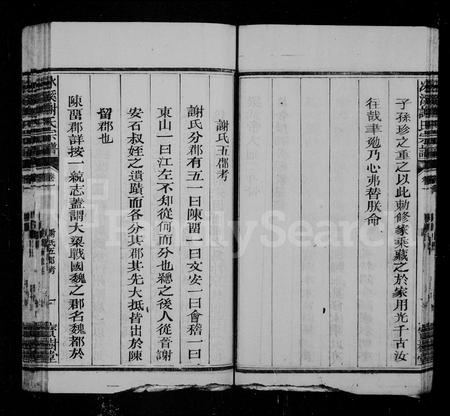 子孫珍之重之以此勅修家乘藏之於家用光千古汝
往哉聿勉乃心弗替朕命
謝氏五郡考
謝氏分郡有五一曰陳留一曰文安一曰會稽一曰
東山一曰江左不知從何而分也總之後人從晉謝
安石叔姪之遺蹟而各分其郡其先大抵皆出於陳
留郡也
陳留郡詳按一統志蓋謂大梁戰國魏之郡名魏都於
謝氏五郡考
FamilySearch